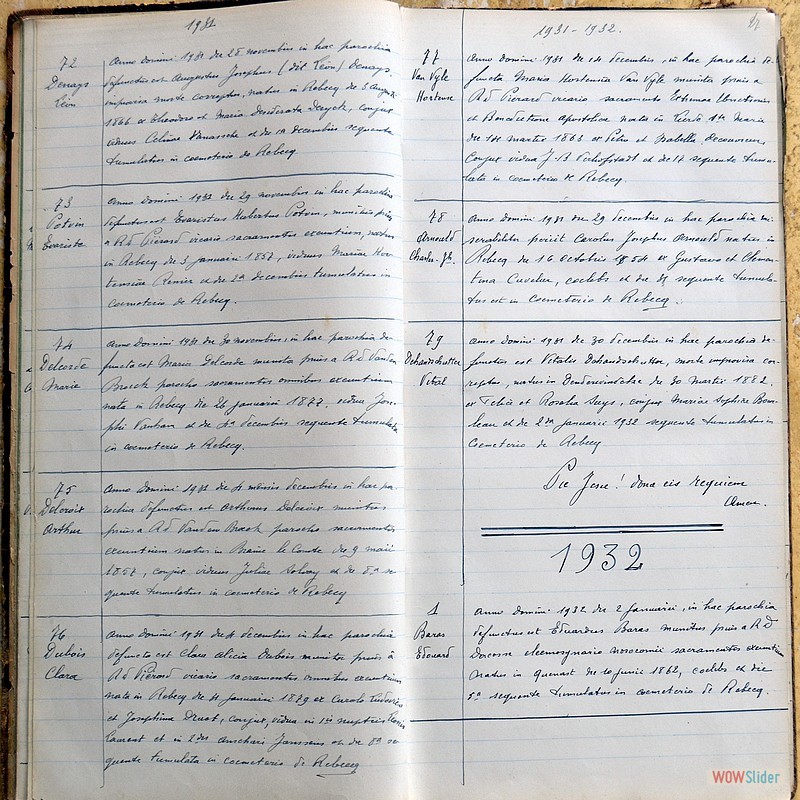 1931
72
Denays
Léon
Anno Domini 1931 die 25 novembris in hac parochia
defunctus est Augustus Josephus (dit Léon) Denays,
improvisa morte correptus, natus in Rebecq die 3 Augusti
1866 ex Theodoro et Maria Desiderata Deryck, conjux
viduus Celinae Hanassche et die 1a decembris sequente
tumulatus in coemeterio de Rebecq.
73
Potvin
Evariste
Anno Domini 1931 die 29 novembris in hac parochia
defunctus est Evaristus Hubertus Potvin, munitus prius
a Rd Pierard vicario sacramentis exeuntium, natus
in Rebecq die 3 januarii 1857, viduus Mariae Hor-
tensiae Renier et die 2a decembris tumulatus in
coemeterio de Rebecq.
74
Delcorde
Marie
Anno Domini 1931 die 30 novembris, in hac parochia de-
functa est Maria Delcorde munita prius a Rd Vanden
Broeck parocho sacramentis omnibus exeuntium
nata in Rebecq die 26 januarii 1877, vidua Jose-
phi Vanham et die decembris sequente tumulata
in coemeterio de Rebecq.
75
Delcroix
Arthur
Anno Domini 1931 die 4 mensis decembris in hac pa-
rochia defunctus est Arthurus Delcroix munitus
prius a Rd Vanden Broeck parocho sacramentis
exeuntium natus in Braine le Comte die 9 maii
1857, conjux viduus Juliae Solvay et die 8a se-
quente tumulatus in coemeterio de Rebecq
76
Dubois
Clara
Anno Domini 1931 die 4 decembris in hac parochia
defuncta est Clara Alicia Dubois munita prius a
Rd Pierard vicario sacramentis omnibus exeuntium
nata in Rebecq die 4 januarii 1879 ex Carolo Ludovico
et Josephina Druet, conjux, vidua in 1is nuptiis
Laurent et in 2dis Janssens et die 8a se-
quente tumulata in coemeterio de Rebecq
1931-1932.
77
Van Vyle
Hortense
Anno Domini 1931 die 14 decembris, in hac parochia de-
functa Maria Hortensia Van Vyle munita prius a
Rd Pierard vicario sacramento Extremae Unctionis
et Benedictione apostolica nata in
die 14 martii 1863 ex Petro et Isabella
conjux vidua J-B et die 17 sequente tumu-
lata in coemeterio de Rebecq.
78
Arnould
Charles-Jh.
Anno Domini 1931 die 29 decembris in hac parochia mi-
serabiliter periit Carolus Josephus Arnould natus in
Rebecq die 16 octobris 1854 ex Gustavo et Clemen-
tina Cuvelier, coelebs et die 31 sequente tumula-
tus est in coemeterio de Rebecq.
79
Dehandschutter
Vital
Anno Domini 1931 die 30 decembris in hac parochia de-
functus est Vitalis Dehandschutter, morte improvisa cor-
reptus, natus in Denderwindeke die 30 Martii 1882,
ex Felice et Rosalia Suys, conjux Mariae Sophiae Bom-
beau et die 2da januarii 1932 sequente tumulatus in
Coemeterio de Rebecq
Pie Jesu! dona eis requiem
Amen.
1932
1
Baras
Edouard
Anno Domini 1932 die 2 Januarii, in hac parochia
defunctus est Eduardus Baras munitus prius a Rd
eleemosynario nosocomii sacramentis exeuntium
natus in Quenast die 10 junii 1862, coelebs et die
5a sequente tumulatus in coemeterio de Rebecq.
WOWSlider